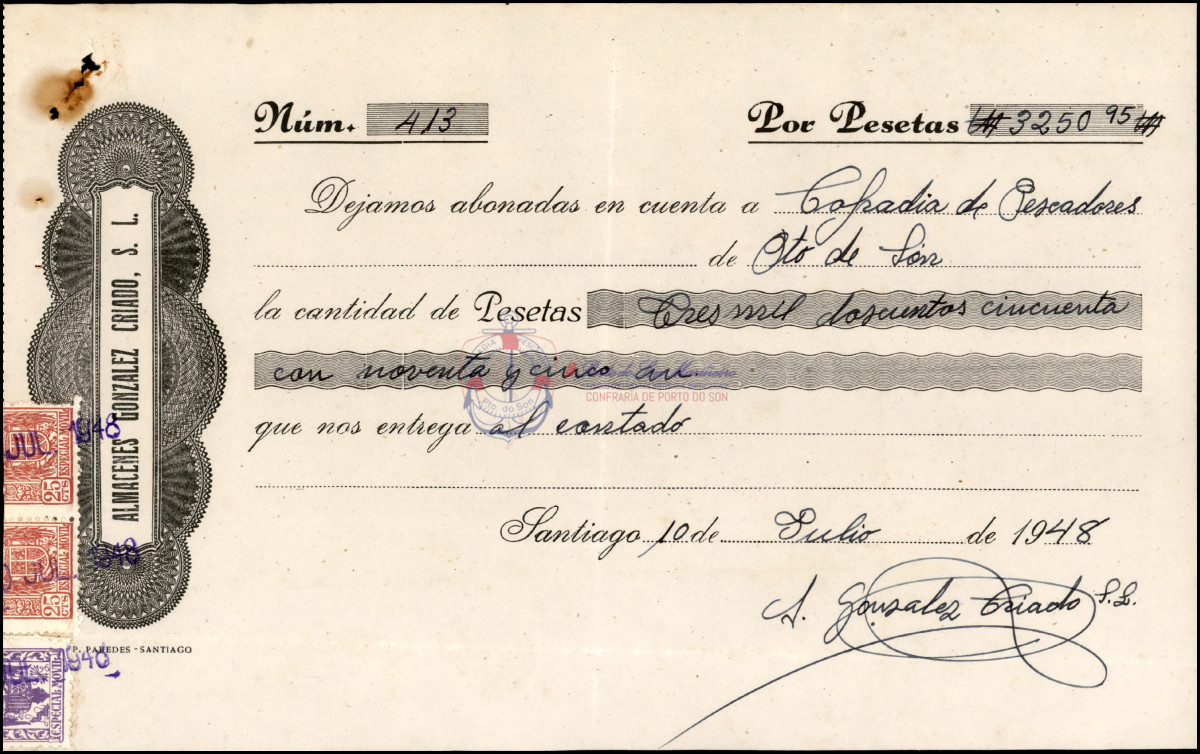 Núm. 413
Por Pesetas 3250 95
Dejamos abonadas en cuenta a Cofradia de Pescadores
de Pto de Són
la cantidad de Pesetas Tres mil doscientos cincuenta
con noventa y cinco
que nos entrega al contado
Santiago 10 de Julio de 1948
A. Gonzalez Criado S.L.
ALMACENES GONZALEZ CRIADO, S. L.
P. PAREDES - SANTIAGO
JUL 1948
ESPECIAL MOVIL
25 CTS
JUL 1948
ESPECIAL MOVIL
25 CTS
JUL. 1948
ESPECIAL MOVIL
Pto. do Son
CONFRARÍA DE PORTO DO SON